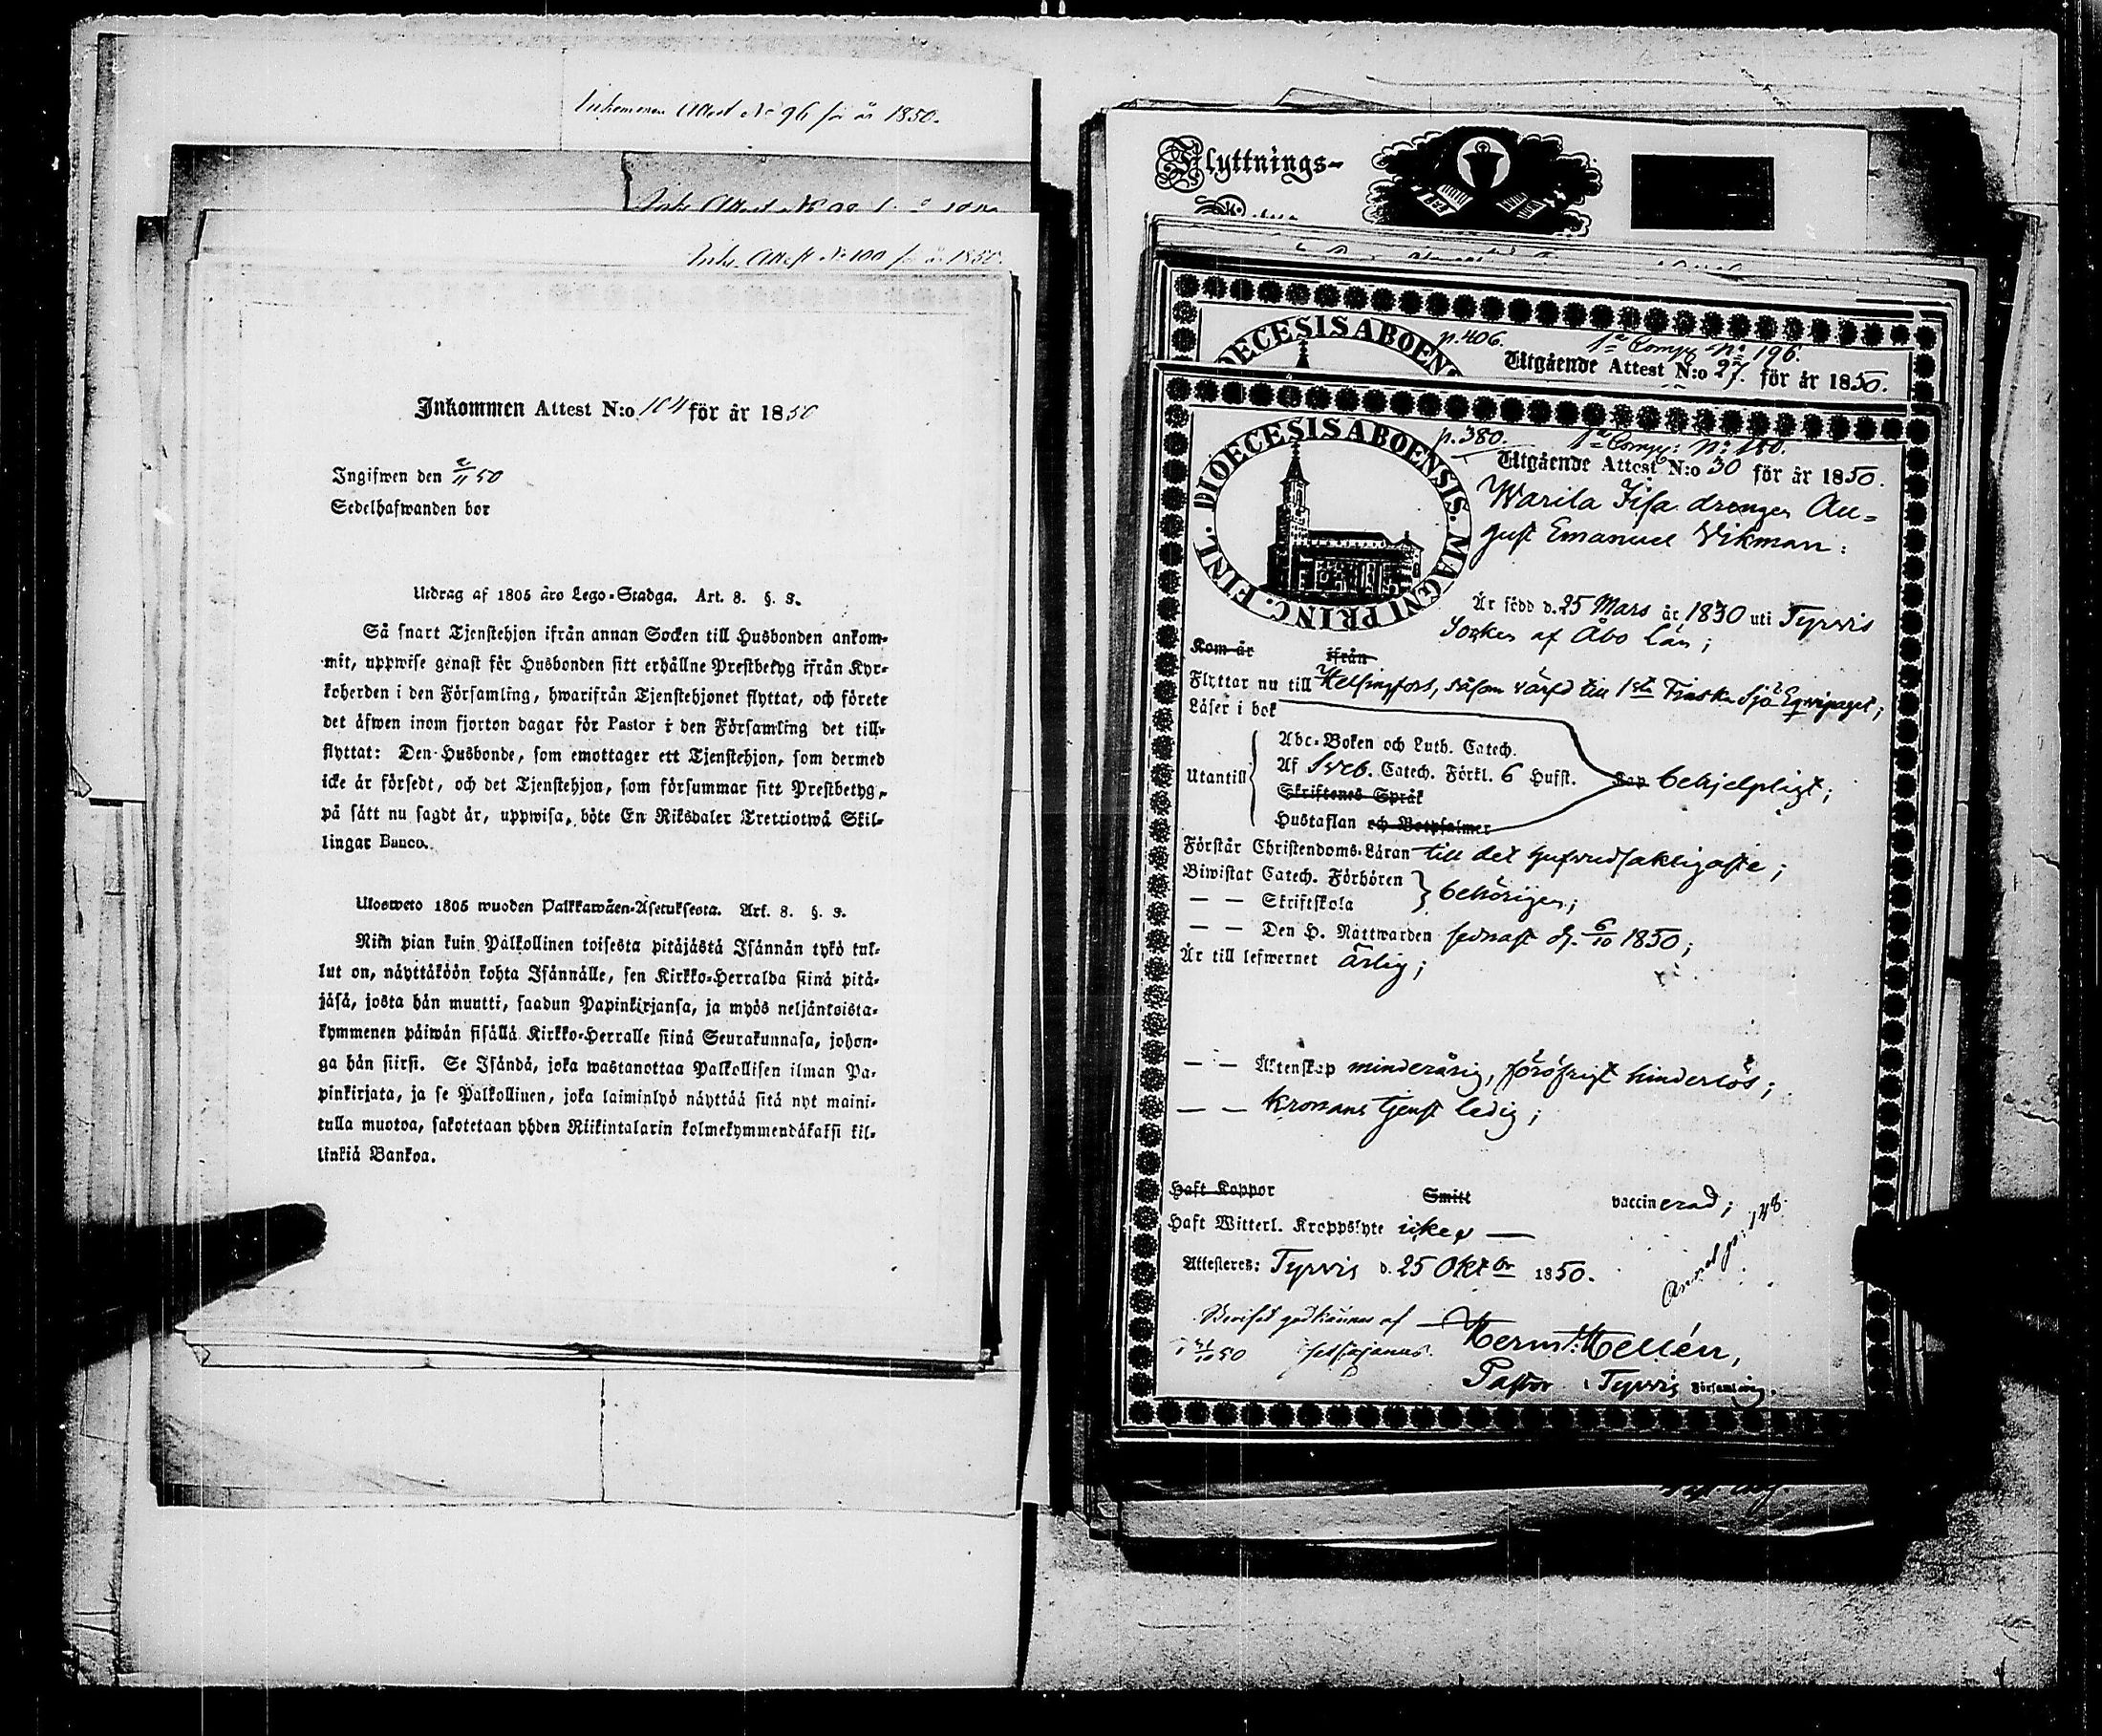 Inkommen Attest No 96 för år 1850.
Ink. Attest No 100 för år 1850.
Inkommen Attest N:o 104 för år 1850
Ingifwen den 2/11 50
Sedelhafwanden bor
Utdrag af 1805 års Lego-Stadga. Art. 8. §. 3.
Så snart Tjenstehjon ifrån annan Socken till Husbonden ankom-
mit, uppwise genast för Husbonden sitt erhållne Prestbetyg ifrån Kyr-
koherden i den Församling, hwarifrån Tjenstehjonet flyttat, och förete
det åfwen inom fjorton dagar för Pastor i den Församling det till-
flyttat: Den Husbonde, som emottager ett Tjenstehjon, som dermed
icke är försedt, och det Tjenstehjon, som försummar sitt Prestbetyg,
på sått nu sagdt är, uppwisa, böte En Riksdaler Trettiotwå Skil-
lingar Banco.
Ulosweto 1805 wuoden Palkkawäen-Asetuksesta. Art. 8. §. 3.
Niin pian kuin Palkollinen toisesta pitäjästä Isännän tykö tul-
lut on, näyttäköön kohta Isännälle, sen Kirkko-Herralda siinä pitä-
jäsä, josta hän muutti, saadun Papinkirjansa, ja myös neljäntoista-
kymmenen päiwän sisällä Kirkko-Herralle siinä Seurakunnasa, johon-
ga hän siirsi. Se Isändä, joka wastanottaa Palkollisen ilman Pa-
pinkirjata, ja se Palkollinen, joka laiminlyö näyttää sitä nyt maini-
tulla muotoa, sakotetaan yhden Riikintalarin kolmekymmendäkaksi kil-
linkiä Bankoa.
Flyttnings-
DIOECESIS ABOENSIS
p. 406.
1a Comp. No 196.
Utgående Attest N:o 27. för år 1850.
DIOECESIS ABOENSIS. MAGNI PRINC. FINL.
p. 380.
1a Comp: No 150.
Utgående Attest N:o 30 för år 1850.
Warila Jisa drengen Au=
gust Emanuel Wikman:
Är född d. 25 Mars år 1830 uti Tyrvis
Socken af Åbo Län;
Kom år ifrån
Flyttar nu till Helsingfors, såsom värfd till 1sta Finska Sjö-Eqvipaget;
Läser i bok
Abc-Boken och Luth. Catech.
Utantill Af Sveb. Catech. Förkl. 6 Hufst. behjelpligt;
Skriftenes Språk
Hustaflan och Botpsalmer
Förstår Christendoms-Läran till det hufvudsakligaste;
Biwistat Catech. Förhören
— — Skriftskola behörigen;
— — Den H. Nattwarden sednast d. 6/10 1850;
Är till lefwernet ärlig;
— — Äktenskap minderårig, föröfrigt hinderlös;
— — Kronans tjenst ledig;
Haft Koppor Smitt vaccinerad;
Haft Witterl. Kroppslyte icke —
Attesteres: Tyrvis d. 25 Oktbr 1850.
Beviset godkännes af
Herm. Hellén,
Pastor i Tyrvis Församling.